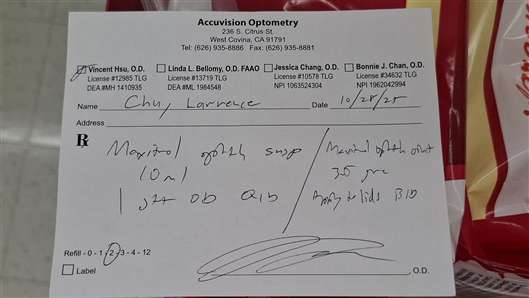 Accuvision Optometry
236 S. Citrus St.
West Covina, CA 91791
Tel: (626) 935-8886 Fax: (626) 935-8881
Vincent Hsu, O.D. Linda L. Bellomy, O.D. FAAO Jessica Chang, O.D. Bonnie J. Chan, O.D.
License #12985 TLG License #13719 TLG License #10578 TLG License #34632 TLG
DEA #MH 1410935 DEA #ML 1984548 NPI 1063524304 NPI 1962042994
Name Chu, Lawrence Date 10/28/25
Address
Rx
Maxitrol ophth susp / Maxitrol ophth oint
10 ml 3.5 gm
1 gtt QID Apply to lids BID
Refill - 0 - 1 - 2 - 3 - 4 - 12
Label O.D.